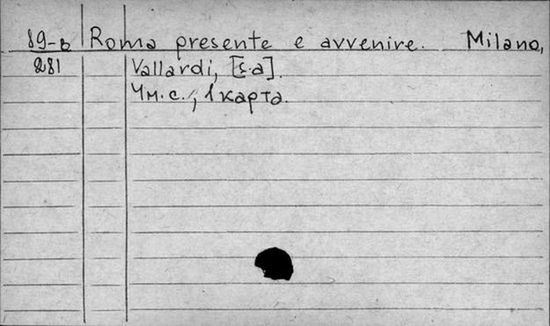 19-b Roma presente e avvenire. Milano,
281 Vallardi, [s.a].
4 м. с., 1 карта.